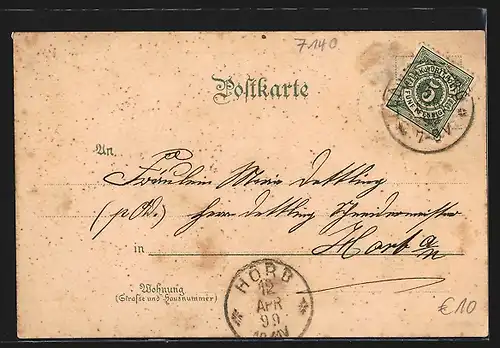 7140
Postkarte
5
7-8V
An
Fräulein Marie Dettling
(p Ad.) Herrn Dettling Schneidermeister
in Horb a/n
HORB
12
APR
99
Wohnung
(Straße und Hausnummer)
€10